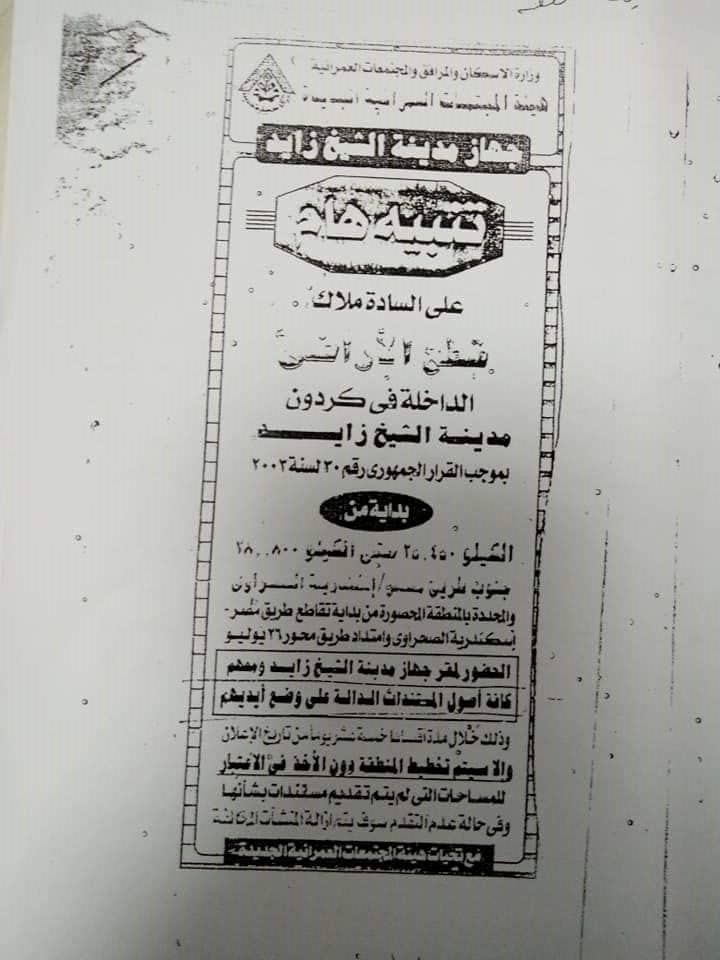 وزارة الاسكان والمرافق والمجتمعات العمرانية
هيئة المجتمعات العمرانية الجديدة
جهاز مدينة الشيخ زايد
تنبيه هام
على السادة ملاك
الداخلة فى كردون
مدينة الشيخ زايد
بموجب القرار الجمهورى رقم ٣٠ لسنة ٢٠٠٢
بداية من
الكيلو ٢٥,٤٥٠ حتى الكيلو ٣٨,٨٠٠
جنوب طريق مصر/إسكندرية الصحراوى
والمحددة بالمنطقة المحصورة من بداية تقاطع طريق مصر-
إسكندرية الصحراوى وامتداد طريق محور ٢٦ يوليو
الحضور لمقر جهاز مدينة الشيخ زايد ومعهم
كافة أصول المستندات الدالة على وضع أيديهم
وذلك خلال مدة أقصاها خمسة عشر يوماً من تاريخ الإعلان
وإلا سيتم تخطيط المنطقة دون الأخذ فى الاعتبار
للمساحات التى لم يتم تقديم مستندات بشأنها
وفى حالة عدم التقدم سوف يتم إزالة المنشآت
مع تحيات هيئة المجتمعات العمرانية الجديدة